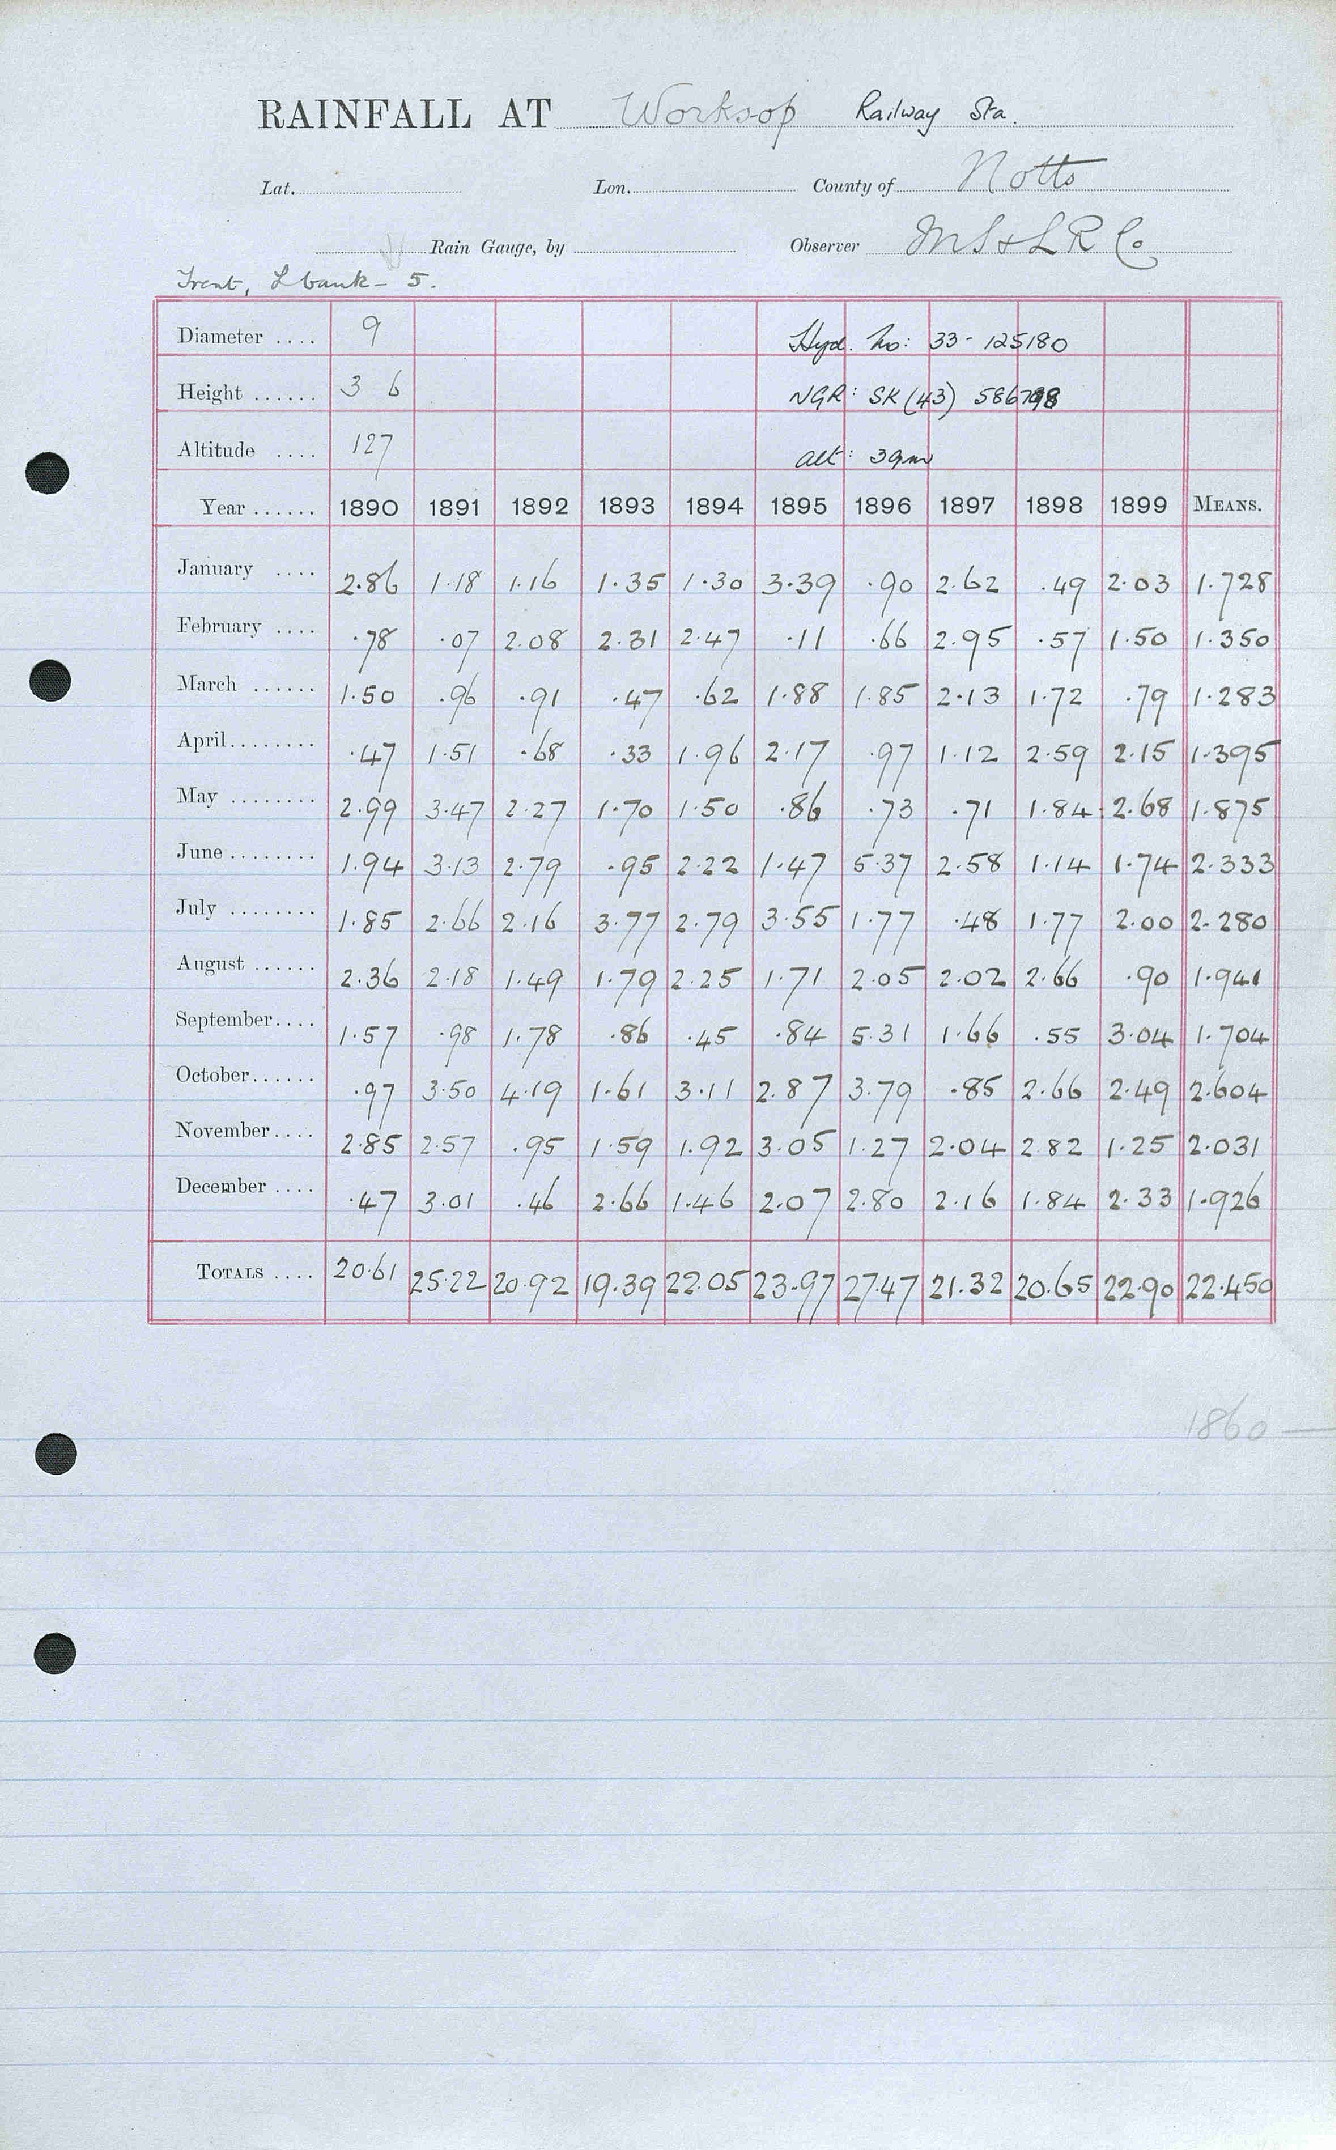 RAINFALL AT Worksop Railway Sta.
Lat. Lon. County of Notts
Rain Gauge, by Observer M S & L R Co
Trent, L bank - 5.
Diameter .... 9 Hyd. No: 33-125180
Height ...... 3 6 NGR: SK (43) 586798
Altitude .... 127 alt: 39m
Year ...... 1890 1891 1892 1893 1894 1895 1896 1897 1898 1899 MEANS.
January .... 2.86 1.18 1.16 1.35 1.30 3.39 .90 2.62 .49 2.03 1.728
February .... .78 .07 2.08 2.31 2.47 .11 .66 2.95 .57 1.50 1.350
March ...... 1.50 .96 .91 .47 .62 1.88 1.85 2.13 1.72 .79 1.283
April........ .47 1.51 .68 .33 1.96 2.17 .97 1.12 2.59 2.15 1.395
May ........ 2.99 3.47 2.27 1.70 1.50 .86 .73 .71 1.84 2.68 1.875
June........ 1.94 3.13 2.79 .95 2.22 1.47 5.37 2.58 1.14 1.74 2.333
July ........ 1.85 2.66 2.16 3.77 2.79 3.55 1.77 .48 1.77 2.00 2.280
August ...... 2.36 2.18 1.49 1.79 2.25 1.71 2.05 2.02 2.66 .90 1.941
September.... 1.57 .98 1.78 .86 .45 .84 5.31 1.66 .55 3.04 1.704
October...... .97 3.50 4.19 1.61 3.11 2.87 3.79 .85 2.66 2.49 2.604
November.... 2.85 2.57 .95 1.59 1.92 3.05 1.27 2.04 2.82 1.25 2.031
December .... .47 3.01 .46 2.66 1.46 2.07 2.80 2.16 1.84 2.33 1.926
TOTALS .... 20.61 25.22 20.92 19.39 22.05 23.97 27.47 21.32 20.65 22.90 22.450
1860 —